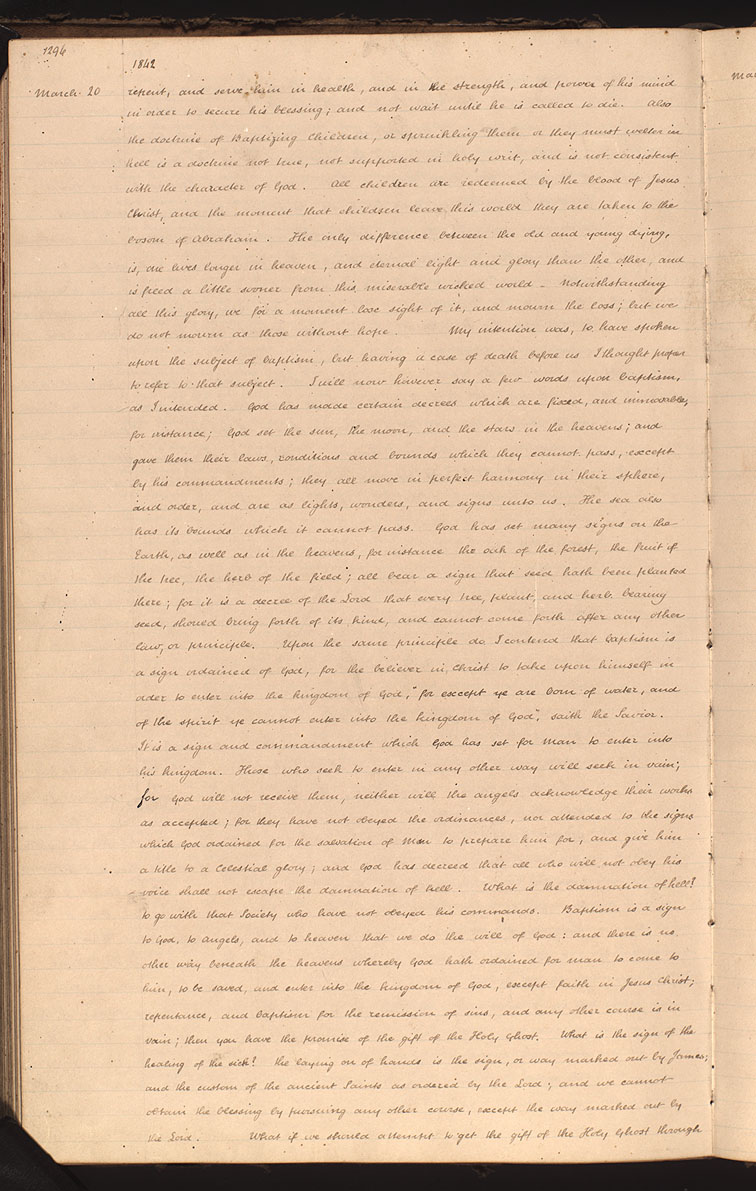 1294
1842
March 20
repent, and serve him in health, and in the strength, and power of his mind
in order to secure his blessing; and not wait until he is called to die. Also
the doctrine of Baptizing Children, or sprinkling them or they must welter in
hell is a doctrine not true, not supported in holy writ, and is not consistent
with the character of God. All children are redeemed by the blood of Jesus
Christ, and the moment that children leave this world they are taken to the
bosom of Abraham. The only difference between the old and young dying,
is, one lives longer in heaven, and eternal light and glory than the other, and
is freed a little sooner from this miserable wicked world - Notwithstanding
all this glory, we for a moment lose sight of it, and mourn the loss; but we
do not mourn as those without hope - My intention was, to have spoken
upon the subject of baptism, but having a case of death before us I thought proper
to refer to that subject. I will now however say a few words upon baptism,
as I intended. God has made certain decrees which are fixed, and immovable,
for instance; God set the sun, the moon, and the stars in the heavens; and
gave them their laws, conditions and bounds which they cannot pass, except
by his commandments; they all move in perfect harmony in their sphere,
and order, and are as lights, wonders, and signs unto us. The sea also
has its bounds which it cannot pass. God has set many signs on the
Earth, as well as in the heavens, for instance the oak of the forest, the fruit of
the tree, the herb of the field; all bear a sign that seed hath been planted
there; for it is a decree of the Lord that every tree, plant, and herb bearing
seed, should bring forth of its kind, and cannot come forth after any other
law, or principle. Upon the same principle do I contend that baptism is
a sign ordained of God, for the believer in Christ to take upon himself in
order to enter into the kingdom of God, "for except ye are born of water, and
of the spirit ye cannot enter into the kingdom of God", saith the Savior.
It is a sign and commandment which God has set for man to enter into
his kingdom. Those who seek to enter in any other way will seek in vain;
for God will not receive them, neither will the angels acknowledge their works
as accepted; for they have not obeyed the ordinances, nor attended to the signs
which God ordained for the salvation of Man to prepare him for, and give him
a title to a Celestial glory; and God has decreed that all who will not obey his
voice shall not escape the damnation of hell. What is the damnation of hell?
to go with that Society who have not obeyed his commands. Baptism is a sign
to God, to angels, and to heaven that we do the will of God: and there is no
other way beneath the heavens whereby God hath ordained for man to come to
him, to be saved, and enter into the kingdom of God, except faith in Jesus Christ;
repentance, and baptism for the remission of sins, and any other course is in
vain; then you have the promise of the gift of the Holy Ghost. What is the sign of the
healing of the sick? the laying on of hands is the sign, or way marked out by James;
and the custom of the ancient Saints as ordered by the Lord; and we cannot
obtain the blessing by pursuing any other course, except the way marked out by
the Lord. What if we should attempt to get the gift of the Holy Ghost through